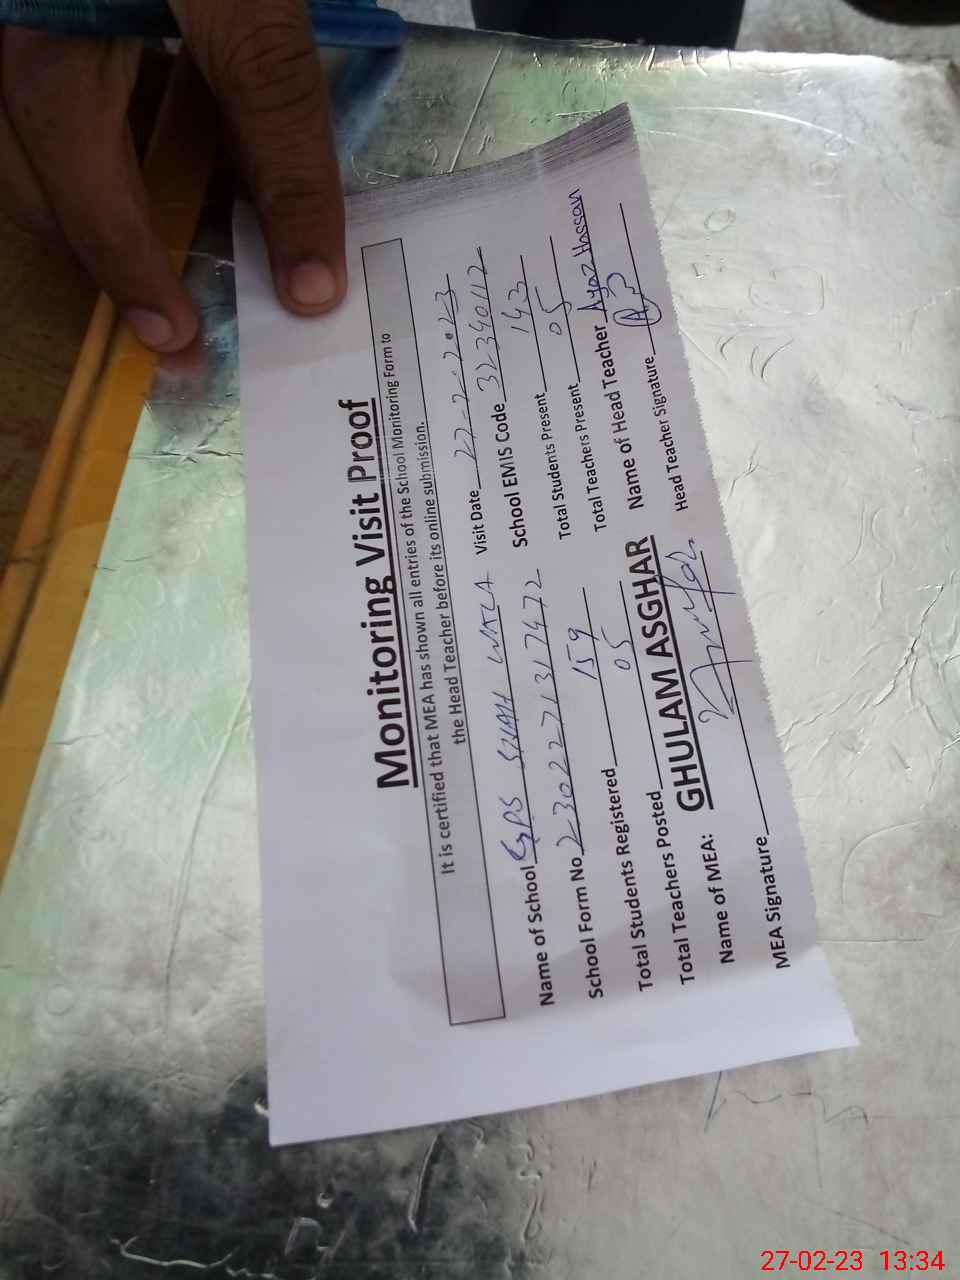 Monitoring Visit Proof
It is certified that MEA has shown all entries of the School Monitoring Form to
the Head Teacher before its online submission.
Name of School GPS Visit Date 27-2-2023
School Form No 2302271317472 School EMIS Code 32340112
Total Students Registered 159 Total Students Present 143
Total Teachers Posted 05 Total Teachers Present 05
Name of MEA: GHULAM ASGHAR Name of Head Teacher Ayaz Hassan
MEA Signature Head Teacher Signature
27-02-23 13:34